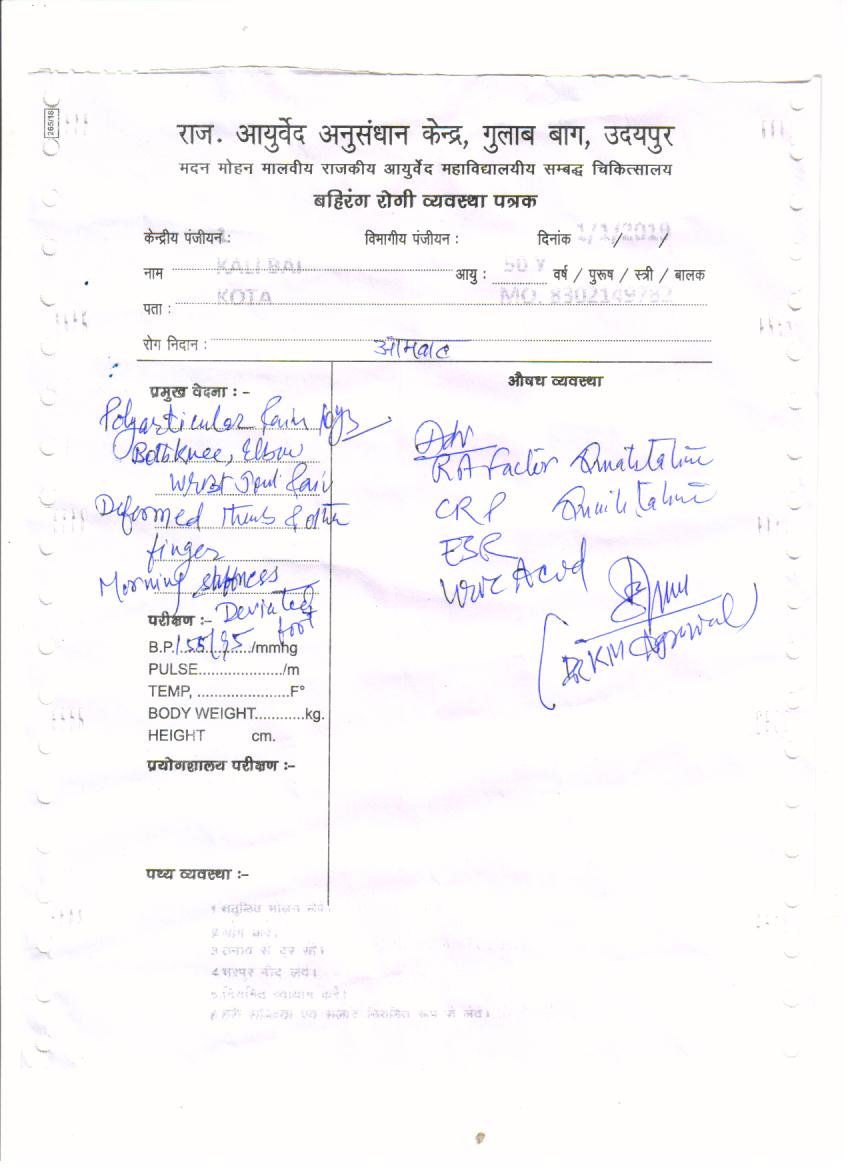 265/18
राज. आयुर्वेद अनुसंधान केन्द्र, गुलाब बाग, उदयपुर
मदन मोहन मालवीय राजकीय आयुर्वेद महाविद्यालयीय सम्बद्ध चिकित्सालय
बहिरंग रोगी व्यवस्था पत्रक
केन्द्रीय पंजीयन : विभागीय पंजीयन : दिनांक 1/1/2019
नाम KALI BAI आयु : 50 Y वर्ष / पुरूष / स्त्री / बालक
पता : KOTA MO. 8302149782
रोग निदान : आमवात
प्रमुख वेदना : -
Polyarticular Pain
Both knee, Elbow
Wrist Joint Pain
Deformed thumb & other
finger
Morning stiffness
Deviated
foot
परीक्षण :-
B.P. 155/95 /mmhg
PULSE..................../m
TEMP, ......................F°
BODY WEIGHT............kg.
HEIGHT cm.
प्रयोगशाला परीक्षण :-
पथ्य व्यवस्था :-
औषध व्यवस्था
Adv
RA Factor Quantitative
CRP Quantitative
ESR
Uric Acid
Dr KM Agrawal
1 संतुलित भोजन लेवें।
2 योग करें।
3 तनाव से दूर रहें।
4 भरपूर नींद लेवें।
5 नियमित व्यायाम करें।
6 हरी सब्जियां एवं सलाद नियमित रूप से लेवें।